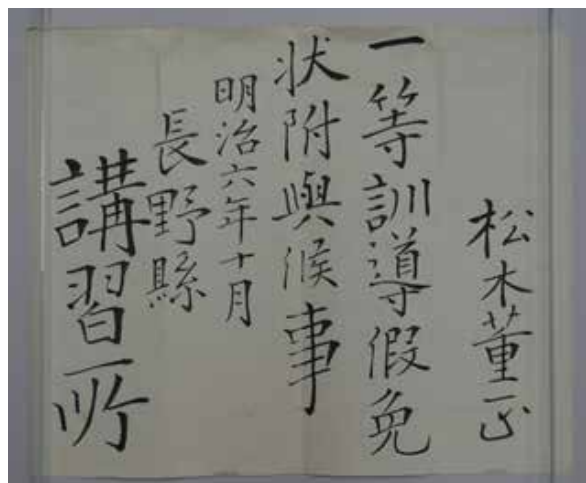 松木董正
一等訓導假免
状附與候事
明治六年十月
長野縣
講習所